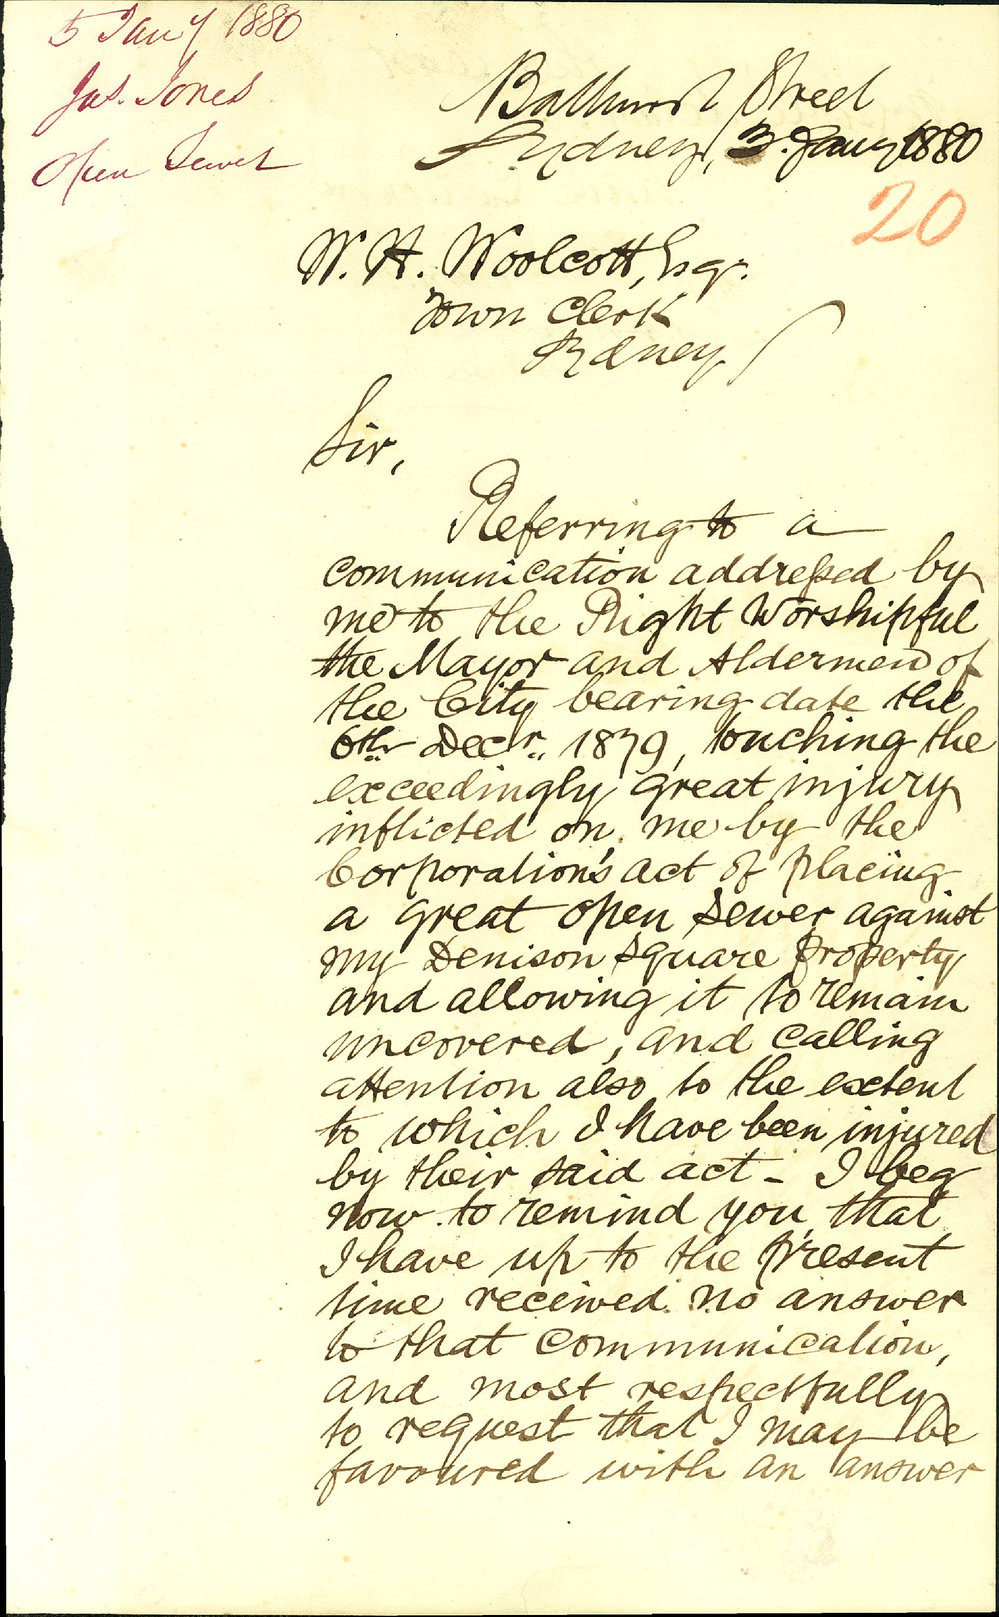 5 Jany 1880
Jas. Jones
Open Sewer
Bathurst Street
Sydney, 3. Jany 1880
20
W. H. Woolcott, Esqr.
Town Clerk
Sydney.
Sir,
Referring to a
communication addressed by
me to the Right Worshipful
the Mayor and Aldermen of
the City bearing date the
6th Decr. 1879, touching the
exceedingly great injury
inflicted on me by the
Corporation's act of placing
a great open sewer against
my Denison Square property
and allowing it to remain
uncovered, and calling
attention also to the extent
to which I have been injured
by their said act - I beg
now to remind you that
I have up to the present
time received no answer
to that communication,
and most respectfully
to request that I may be
favoured with an answer